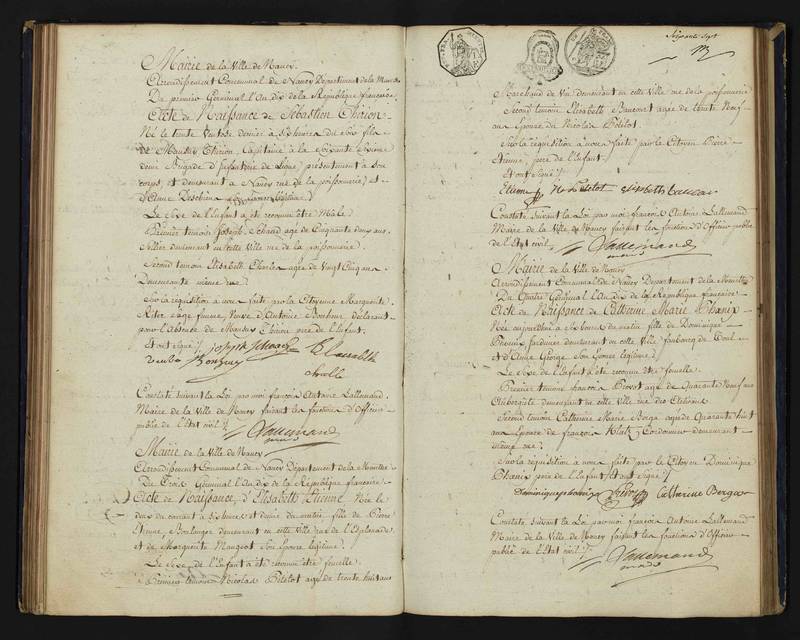 Mairie de la Ville de Nancy.
Arrondissement Communal de Nancy Departement de la Meurthe
Du premier Germinal l'An dix de la République française
Acte de Naissance de Sébastien Thirion
Né le trente Ventose dernier à six heures du soir fils
de Mansuy Thirion, Capitaine à la soixante
demie Brigade d'Infanterie de Ligne, présentement à son
corps, et demeurant à Nancy rue de la poissonnerie, et
d'Anne Deschiens
Le Sexe de l'Enfant a été reconnu être Male
Premier temoin Joseph Schaad agé de Cinquante deux ans
Sellier demeurant en cette Ville rue de la poissonnerie.
Second temoin Elisabeth Charles agée de Vingt Cinq ans
Demeurante même rue
Sur la requisition à nous faite par la Citoyenne Marguerite
femme, Veuve d'Antoine Bonhour déclarant
pour l'absence de Mansuy Thirion pere de l'Enfant.
Et ont signé
Elisabeth
Constaté suivant la Loi par moi françois Antoine Lallemand
Maire de la Ville de Nancy faisant les fonctions d'Officier
public de l'Etat civil
Lallemand
maire
Mairie de la Ville de Nancy
Arrondissement Communal de Nancy Departement de la Meurthe
Du Trois Germinal l'An dix de la République française
Acte de Naissance, d'Elisabeth Etienne Née le
deux du courant à six heures et demie du matin fille de Pierre
Etienne, Boulanger demeurant en cette Ville rue de l'Esplanade
et de Marguerite Maugeot son Epouse légitime
Le Sexe de l'Enfant a été reconnu être femelle
Premier temoin Nicolas Pelelot agé de trente huit ans
Soixante Sept
Marchand de Vin demeurant en cette Ville rue de la poissonnerie
Second temoin Elisabeth agée de trente Neuf
ans Epouse de Nicolas Pelelot.
Sur la requisition à nous faite par le Citoyen Pierre
Etienne, pere de l'Enfant.
Et ont signé
Etienne
Constaté suivant la Loi par moi françois Antoine Lallemand
Maire de la Ville de Nancy faisant les fonctions d'Officier public
de l'Etat civil
Lallemand
maire
Mairie de la Ville de Nancy
Arrondissement Communal de Nancy Departement de la Meurthe
Du Quatre Germinal l'An dix de la République française
Acte de Naissance de Catherine Marie Thanix
Née aujourd'hui à six heures du matin fille de Dominique
Jardinier demeurant en cette Ville faubourg de Toul
et d'Anne George son Epouse légitime
Le Sexe de l'Enfant a été reconnu être femelle.
Premier temoin françois Prevot agé de Quarante Neuf ans
Aubergiste demeurant en cette Ville rue des
Second temoin Catherine Marie Berga agée de Quarante huit
ans Epouse de françois Klatz Cordonnier demeurant
même rue
Sur la requisition à nous faite par le Citoyen Dominique
Thanix pere de l'Enfant et ont signé
Catherine Berga
Constaté suivant la Loi par moi françois Antoine Lallemand
Maire de la Ville de Nancy faisant les fonctions d'Officier
public de l'Etat civil
Lallemand
maire